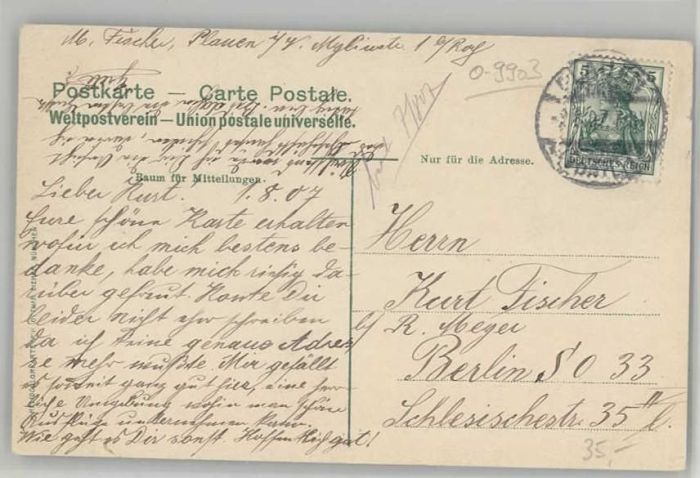 M. Fischer, Plauen i/V. Myliusstr. 1 b/Rog
0-9903
Postkarte — Carte Postale.
Weltpostverein — Union postale universelle.
Nur für die Adresse.
Raum für Mitteilungen.
5 5
DEUTSCHES REICH
Lieber Kurt. 1.8.07
Eure schöne Karte erhalten
wofür ich mich bestens be-
danke, habe mich riesig da-
rüber gefreut. Konte Dir
leider nicht eher schreiben
da ich keine genaue Adres-
se mehr wußte. Mir gefällt
es soweit ganz gut hier, eine herr-
liche Umgebung wohin man schöne
Ausflüge unternehmen kann.
Wie geht es Dir sonst. Hoffentlich gut!
Herrn
Kurt Fischer
b/ R. Meyer
Berlin S O 33
Schlesischestr. 35 II l.
35,-